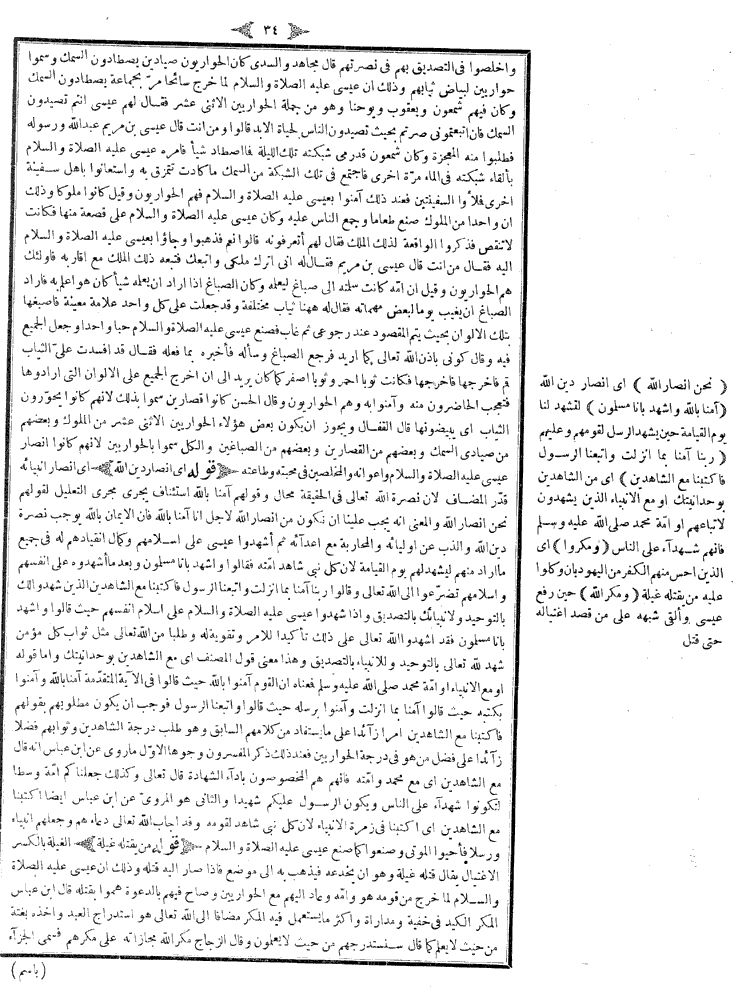 ٣٤
واخلصوا فى التصديق بهم فى نصرتهم قال مجاهد والسدى كان الحواريون صيادين يصطادون السمك وسموا
حواريين لبياض ثيابهم وذلك ان عيسى عليه الصلاة والسلام لما خرج سائحا مر بجماعة يصطادون السمك
وكان فيهم شمعون ويعقوب ويوحنا وهو من جملة الحواريين الاثنى عشر فقال لهم عيسى انتم تصيدون
السمك فان اتبعتمونى صرتم بحيث تصيدون الناس لحياة الابد قالوا ومن انت قال عيسى بن مريم عبدالله ورسوله
فطلبوا منه المعجزة وكان شمعون قدرمى شبكته تلك الليلة فااصطاد شيأ فامره عيسى عليه الصلاة والسلام
بالقاء شبكته فى الماء مرّة اخرى فاجتمع فى تلك الشبكة من السمك ماكادت تتمزق به واستعانوا باهل سفينة
اخرى فلأوا السفينتين فعند ذلك آمنوا بعيسى عليه الصلاة والسلام فهم الحواريون وقيل كانوا ملوكا وذلك
ان واحدا من الملوك صنع طعاما وجمع الناس عليه وكان عيسى عليه الصلاة والسلام على قصعة منها فكانت
لاتنقص فذكروا الواقعة لذلك الملك فقال لهم أتعرفونه قالوا نعم فذهبوا وجاؤا بعيسى عليه الصلاة والسلام
اليه فقال من انت قال عيسى بن مريم فقال له انى اترك ملكى واتبعك فتبعه ذلك الملك مع اقاربه فاولئك
هم الحواريون وقيل ان امّه كانت سلمته الى صباغ ليعلمه وكان الصباغ اذا اراد ان يعلمه شيأ كان هو اعلم به فاراد
الصباغ ان يغيب يوما لبعض مهماته فقال له ههنا ثياب مختلفة وقد جعلت على كل واحد علامة معينة فاصبغها
بتلك الالوان بحيث يتم المقصود عند رجوعى ثم غاب فصنع عيسى عليه الصلاة والسلام حبا واحدا وجعل الجميع
فيه وقال كونى باذن الله تعالى كما اريد فرجع الصباغ وسأله فأخبره بما فعله فقال قد افسدت علىّ الثياب
قم فاخرجها فاخرجها فكانت ثوبا احمر وثوبا اصفر كما كان يريد الى ان اخرج الجميع على الالوان التى ارادوها
فتعجب الحاضرون منه وآمنوا به وهم الحواريون وقال الحسن كانوا قصارين سموا بذلك لانهم كانوا يحوّرون
الثياب اى يبيضونها قال القفال ويجوز ان يكون بعض هؤلاء الحواريين الاثنى عشر من الملوك وبعضهم
من صيادى السمك وبعضهم من القصارين وبعضهم من الصباغين والكل سموا بالحواريين لانهم كانوا انصار
عيسى عليه الصلاة والسلام واعوانه والمخلصين فى محبته وطاعته ( قوله اى انصار دين الله ) اى انصار انبيائه
قدّر المضاف لان نصرة الله تعالى فى الحقيقة محال وقولهم آمنا بالله استئناف يجرى مجرى التعليل لقولهم
نحن انصار الله والمعنى انه يجب علينا ان نكون من انصار الله لاجل انا آمنا بالله فان الايمان بالله يوجب نصرة
دين الله والذب عن اوليائه والمحاربة مع اعدائه ثم أشهدوا عيسى على اسلامهم وكمال انقيادهم له فى جميع
مااراد منهم ليشهد لهم يوم القيامة لان كل نبى شاهد امّته فقالوا واشهد بانا مسلمون وبعد ماأشهدوه على انفسهم
واسلامهم تضرّعوا الى الله تعالى وقالوا ربنا آمنا بما انزلت واتبعنا الرسول فاكتبنا مع الشاهدين الذين شهدوا لك
بالتوحيد ولانبيائك بالتصديق واذا شهدوا عيسى عليه الصلاة والسلام على اسلام انفسهم حيث قالوا واشهد
بانا مسلمون فقد اشهدوا الله تعالى على ذلك تأكيدا للامر وتقوية له وطلبا من الله تعالى مثل ثواب كل مؤمن
شهد لله تعالى بالتوحيد وللانبياء بالتصديق وهذا معنى قول المصنف اى مع الشاهدين بوحدانيتك واما قوله
او مع الانبياء او امّة محمد صلى الله عليه وسلم فعناه ان القوم آمنوا بالله حيث قالوا فى الآية المتقدّمة آمنا بالله وآمنوا
بكتبه حيث قالوا آمنا بما انزلت وآمنوا برسله حيث قالوا واتبعنا الرسول فوجب ان يكون مطلوبهم بقولهم
فاكتبنا مع الشاهدين امرا زآئدا على مايستفاد من كلامهم السابق وهو طلب درجة الشاهدين وثوابهم فضلا
زآئدا على فضل من هو فى درجة الحواريين فعند ذلك ذكر المفسرون وجوها الاوّل ماروى عن ابن عباس انه قال
مع الشاهدين اى مع محمد وامّته فانهم هم المخصوصون بادآء الشهادة قال تعالى وكذلك جعلناكم امّة وسطا
لتكونوا شهدآء على الناس ويكون الرسول عليكم شهيدا والثانى هو المروىّ عن ابن عباس ايضا اكتبنا
مع الشاهدين اى اكتبنا فى زمرة الانبياء لان كل نبى شاهد لقومه وقد اجاب الله تعالى دعاءهم وجعلهم انبياء
ورسلا فأحيوا الموتى وصنعوا كما صنع عيسى عليه الصلاة والسلام ( قوله من يقتله غيلة ) الغيلة بالكسر
الاغتيال يقال قتله غيلة وهو ان يخدعه فيذهب به الى موضع فاذا صار اليه قتله وذلك ان عيسى عليه الصلاة
والسلام لما خرج من قومه هو وامّه وعاد اليهم مع الحواريين وصاح فيهم بالدعوة هموا بقتله قال ابن عباس
المكر الكيد فى خفية ومداراة واكثر مايستعمل فيه المكر مضافا الى الله تعالى هو استدراج العبد واخذه بغتة
من حيث لايعلم كما قال سنستدرجهم من حيث لايعلمون وقال الزجاج مكر الله مجازاته على مكرهم فسمى الجزآء
( باسم )
( نحن انصار الله ) اى انصار دين الله
( آمنا بالله واشهد بانا مسلمون ) لتشهد لنا
يوم القيامة حين يشهد الرسل لقومهم وعليهم
( ربنا آمنا بما انزلت واتبعنا الرسول
فاكتبنا مع الشاهدين ) اى من الشاهدين
بوحدانيتك او مع الانبياء الذين يشهدون
لاتباعهم او امّة محمد صلى الله عليه وسلم
فانهم شهدآء على الناس ( ومكروا ) اى
الذين احس منهم الكفر من اليهود بان وكلوا
عليه من يقتله غيلة ( ومكر الله ) حين رفع
عيسى وألقى شبهه على من قصد اغتياله
حتى قتل